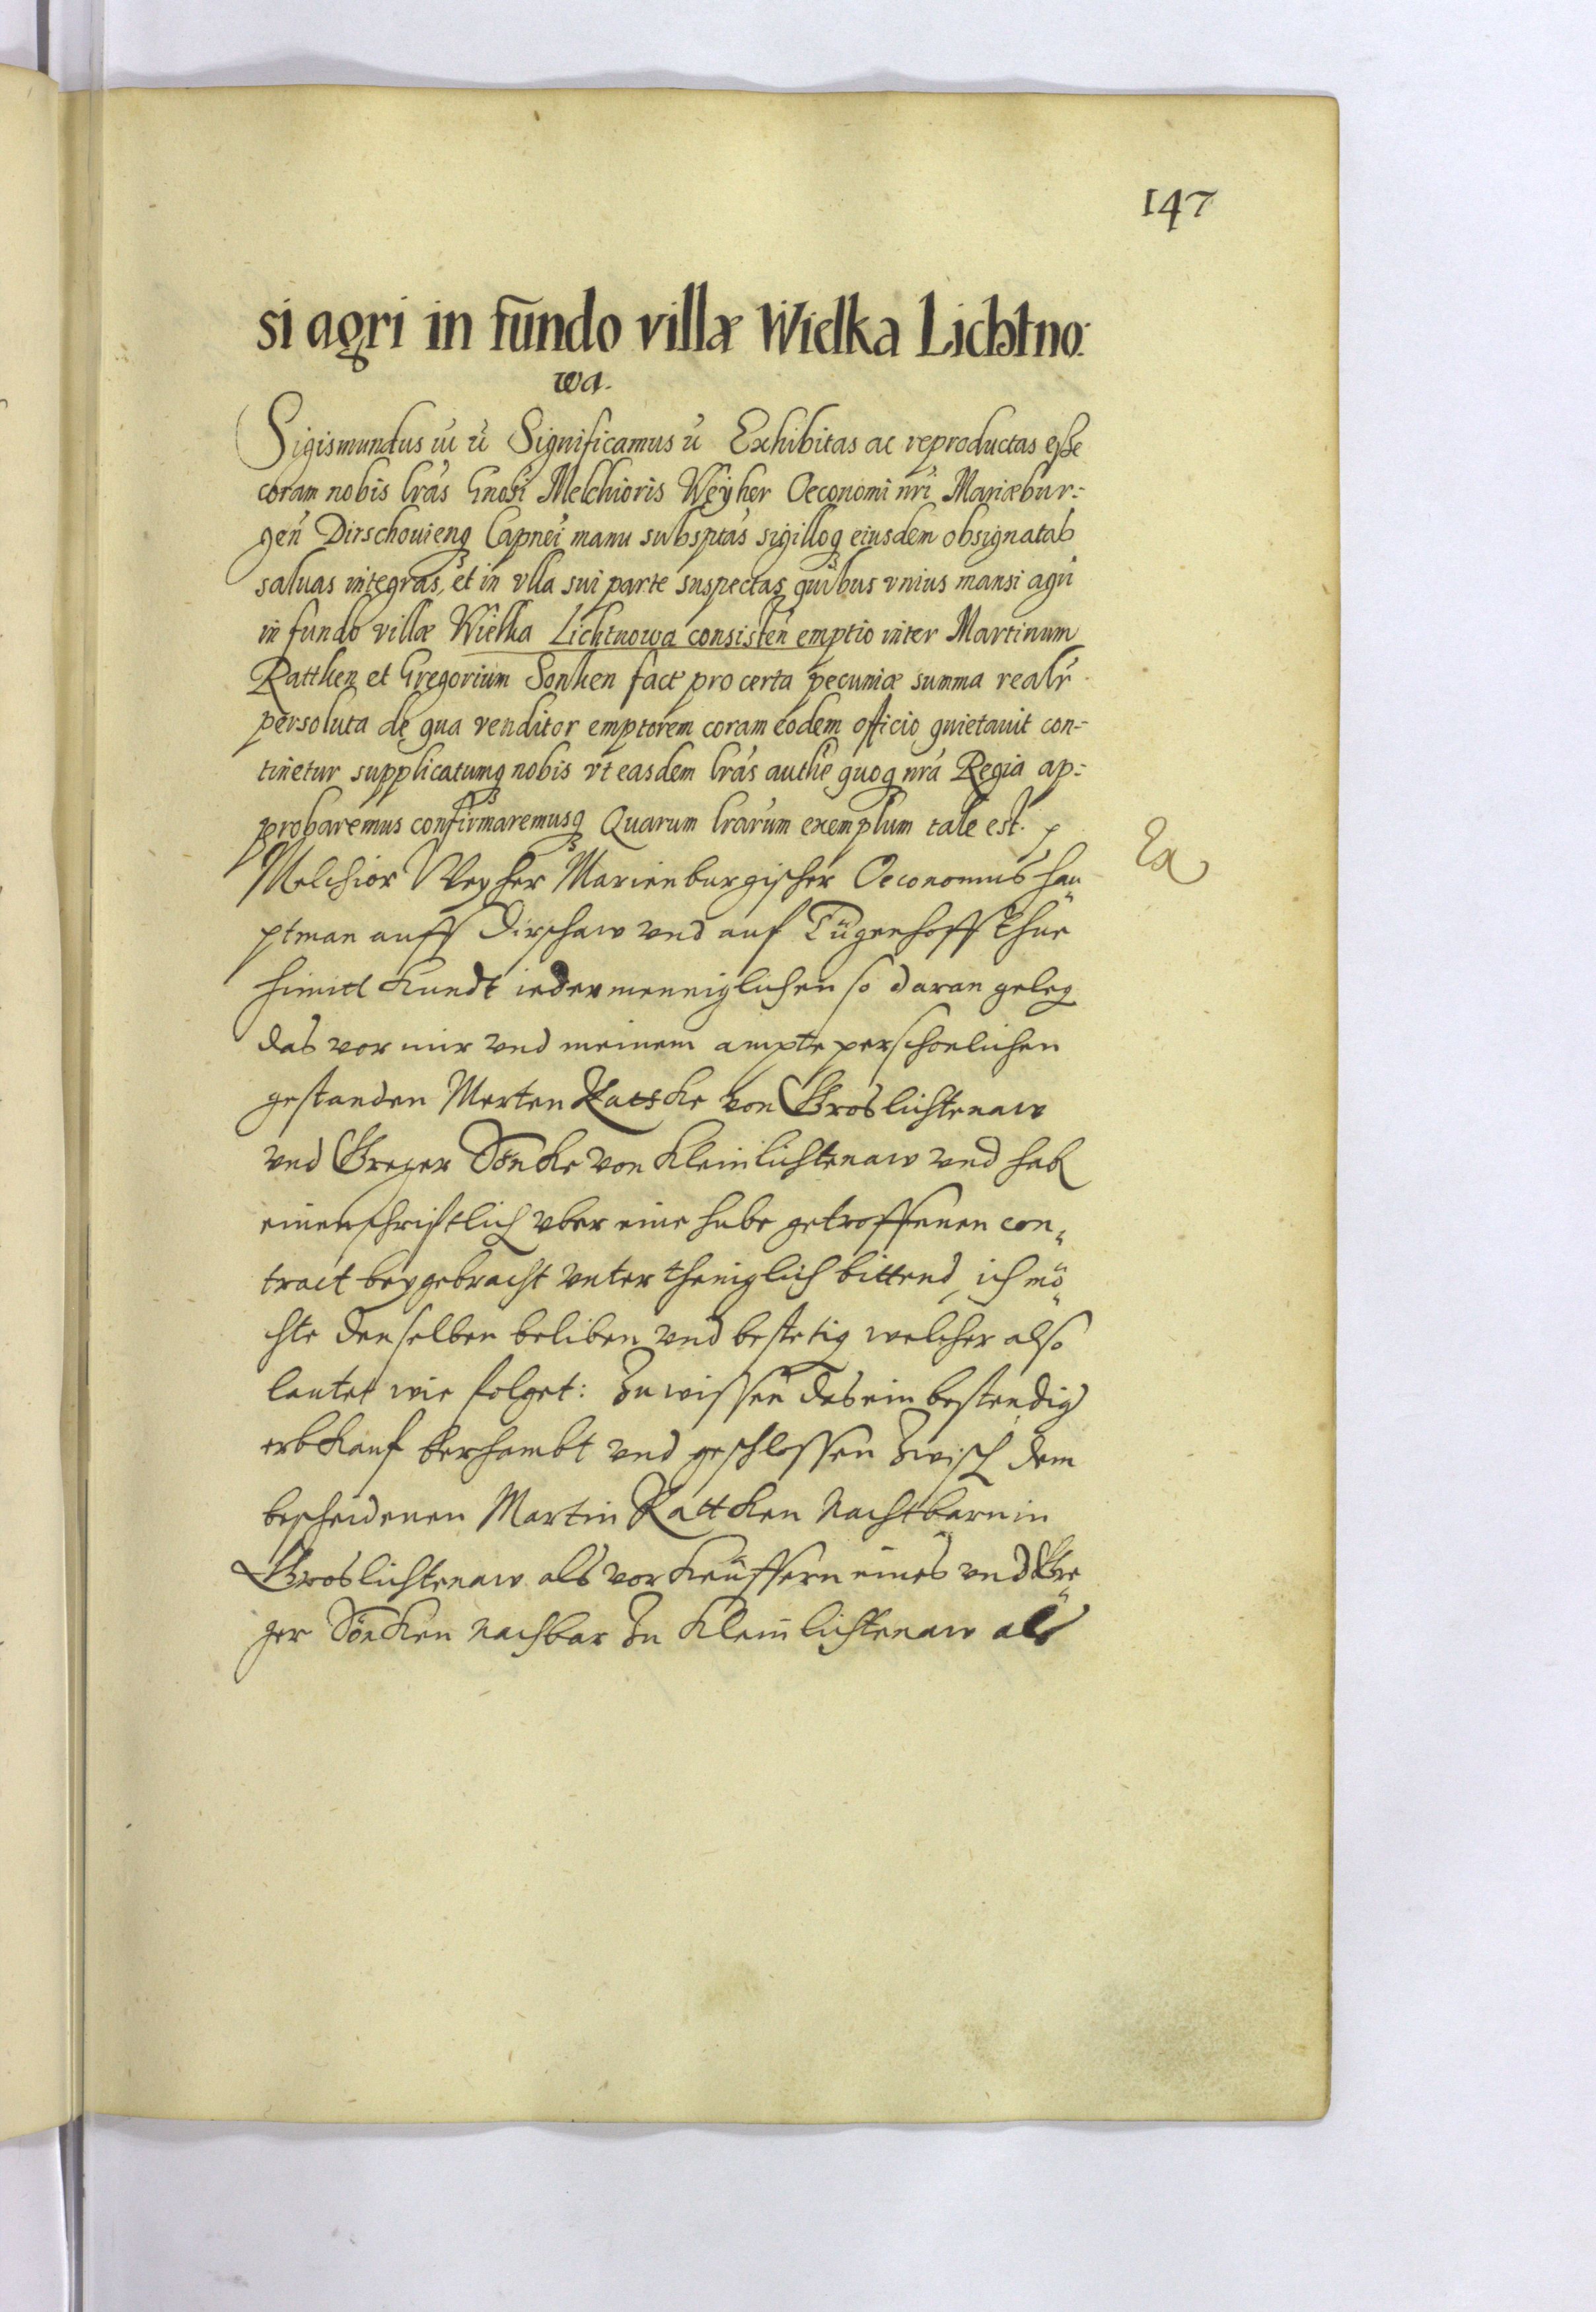 147
si agri in fundo villæ Wielka Lichtno:
wa.
Sigismundus iii ꝛc Significamus ꝛc Exhibitas ac reproductas esse
coram nobis lr̃as Gnosi Melchioris Weyher Oeconomi nr̃i Mariæbur:-
gen̄ Dirschouienq̃ Capnei manu subsptas sigilloq̃ eiusdem obsignatas
saluas integras, et in vlla sui parte suspectas quibus vnius mansi agri
in fundo villæ Wielka Lichtnowa consisten̄ emptio inter Martinum
Rattken et Gregorium Sonken fact pro certa pecuniæ summa realr̃
persoluta de qua venditor emptorem coram eodem officio quietauit con:-
tinetur supplicatumq̃ nobis vt easdem lr̃as authe quoq̃ nr̃a Regia ap:-
probaremus confirmaremusq̃ Quarum lr̃arum exemplum tale est.
Melchior Weyher Marienburgischer Oeconomus hau
ptman auff Dirschaw vnd auf Tügenhoff thue
himitt kundt iedermenniglichen so daran geleg
das vor mir vnd meinem ampte perschonlichen
gestanden Merten Ratske von Groslichtenaw
vnd Greger Söncke von Kleinlichtenaw vnd hab
einen schriftlich vber eine hube getroffenen con„
tract beygebracht vnterthenigtlich bittend, ich mö
chte denselben beliben vnd bestetig welcher also
lautet wie folget: Zu wissen das ein bestendig
erbkauf berhambt vnd geschlossen zwisch dem
bescheidenen Martin Rattcken Nachtbarn in
Groslichtenaw als vorkeüffern eines vnd Gre
ger Söncken nachbar zu Kleinlichtenaw als